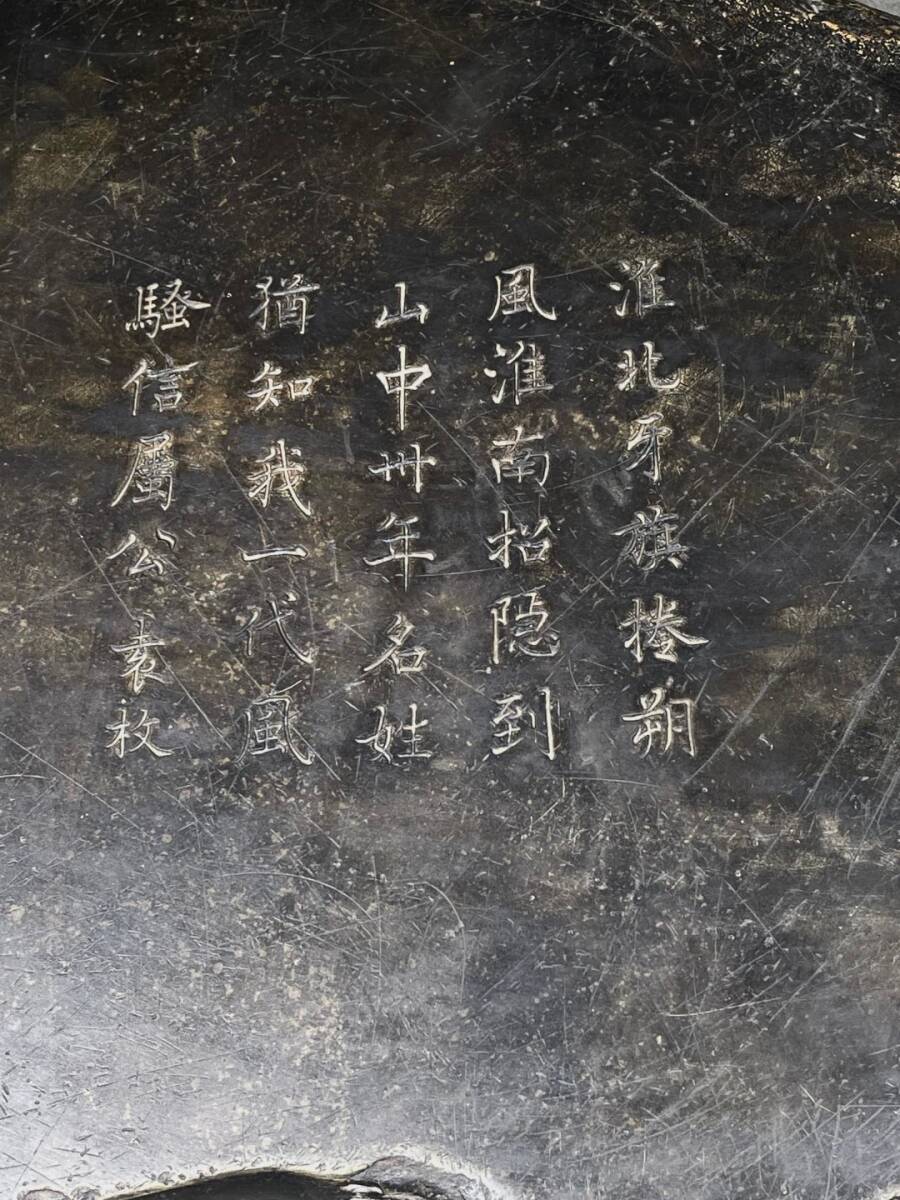 淮北牙旗捲朔
風淮南招隐到
山中卅年名姓
猶知我一代風
騷信屬公袁枚